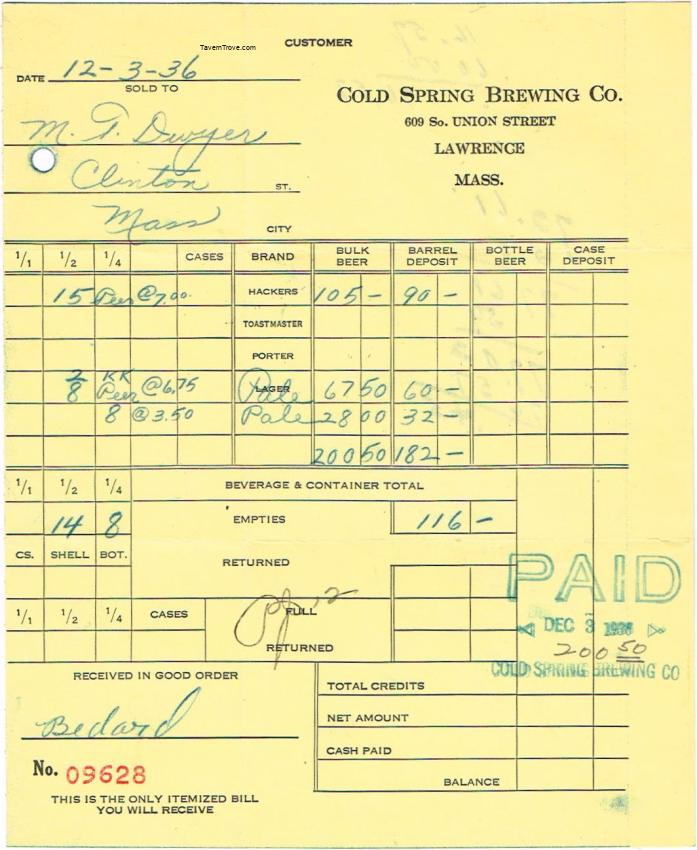 TavernTrove.com
CUSTOMER
DATE 12-3-36
SOLD TO
COLD SPRING BREWING CO.
609 So. UNION STREET
LAWRENCE
MASS.
M. F. Dwyer
Clinton ST.
Mass CITY
1/1 1/2 1/4 CASES BRAND BULK BEER BARREL DEPOSIT BOTTLE BEER CASE DEPOSIT
15 @7.00 HACKERS 105 - 90 -
TOASTMASTER
PORTER
2/8 KK @6.75 LAGER Pale 67 50 60 -
8 @3.50 Pale 28 00 32 -
200 50 182 -
1/1 1/2 1/4 BEVERAGE & CONTAINER TOTAL
14 8 EMPTIES 116 -
CS. SHELL BOT. RETURNED
PAID
1/1 1/2 1/4 CASES FULL
RETURNED
DEC 3 1936
200 50
COLD SPRING BREWING CO
RECEIVED IN GOOD ORDER
Bedard
TOTAL CREDITS
NET AMOUNT
CASH PAID
BALANCE
No. 09628
THIS IS THE ONLY ITEMIZED BILL
YOU WILL RECEIVE